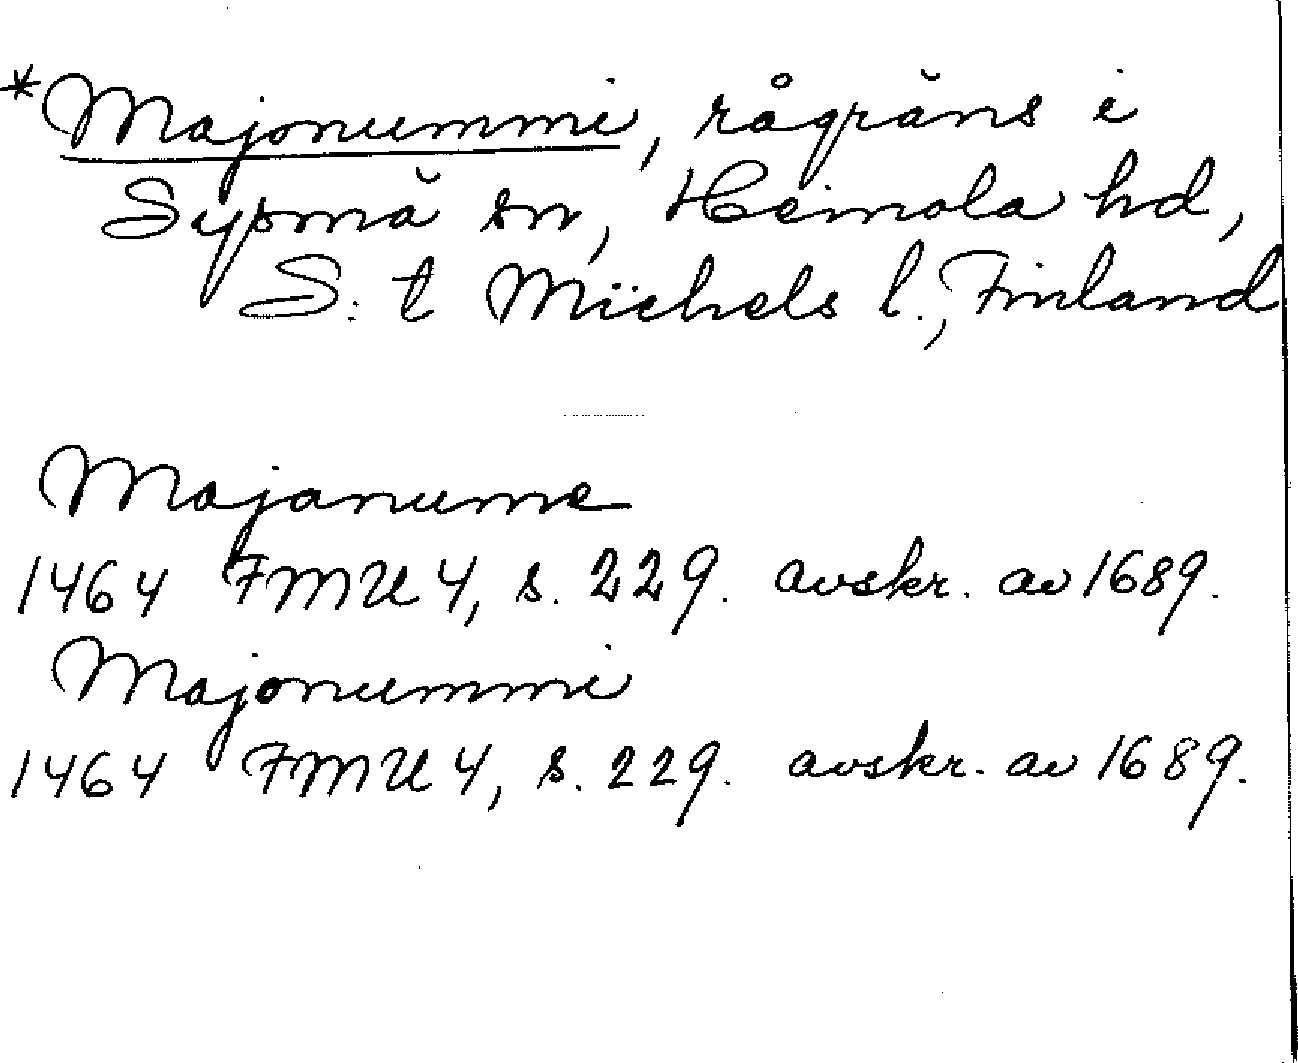 *Majonummi, rågräns i
Sysmä sn, Heinola hd,
S:t Michels l., Finland
Majanume
1464 FMU 4, s. 229. avskr. av 1689.
Majonummi
1464 FMU 4, s. 229. avskr. av 1689.